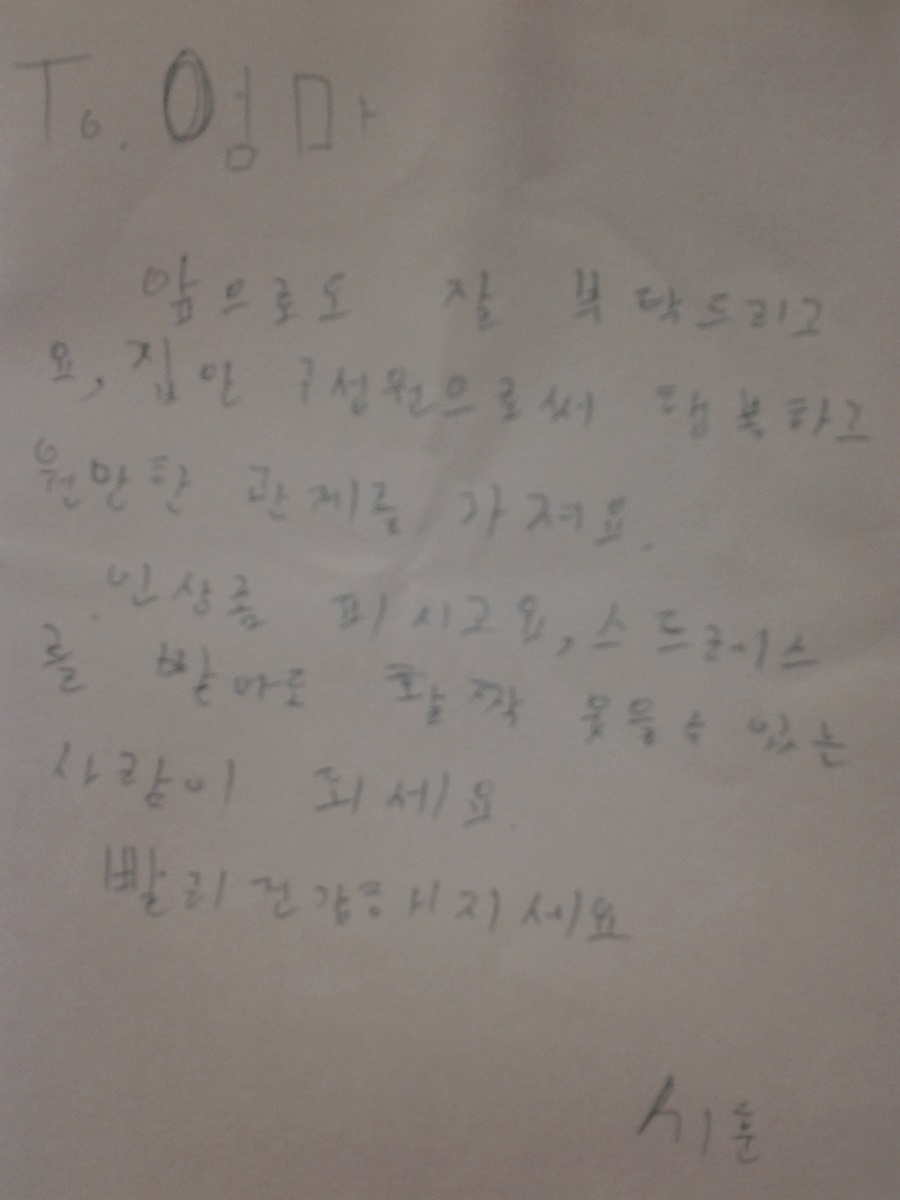 To. 엄마
앞으로도 잘 부탁드리고
요, 집안 구성원으로써 행복하고
원만한 관계를 가져요.
인상좀 피시고요, 스트레스
를 받아도 활짝 웃을수 있는
사람이 되세요.
빨리 건강해지세요
시훈